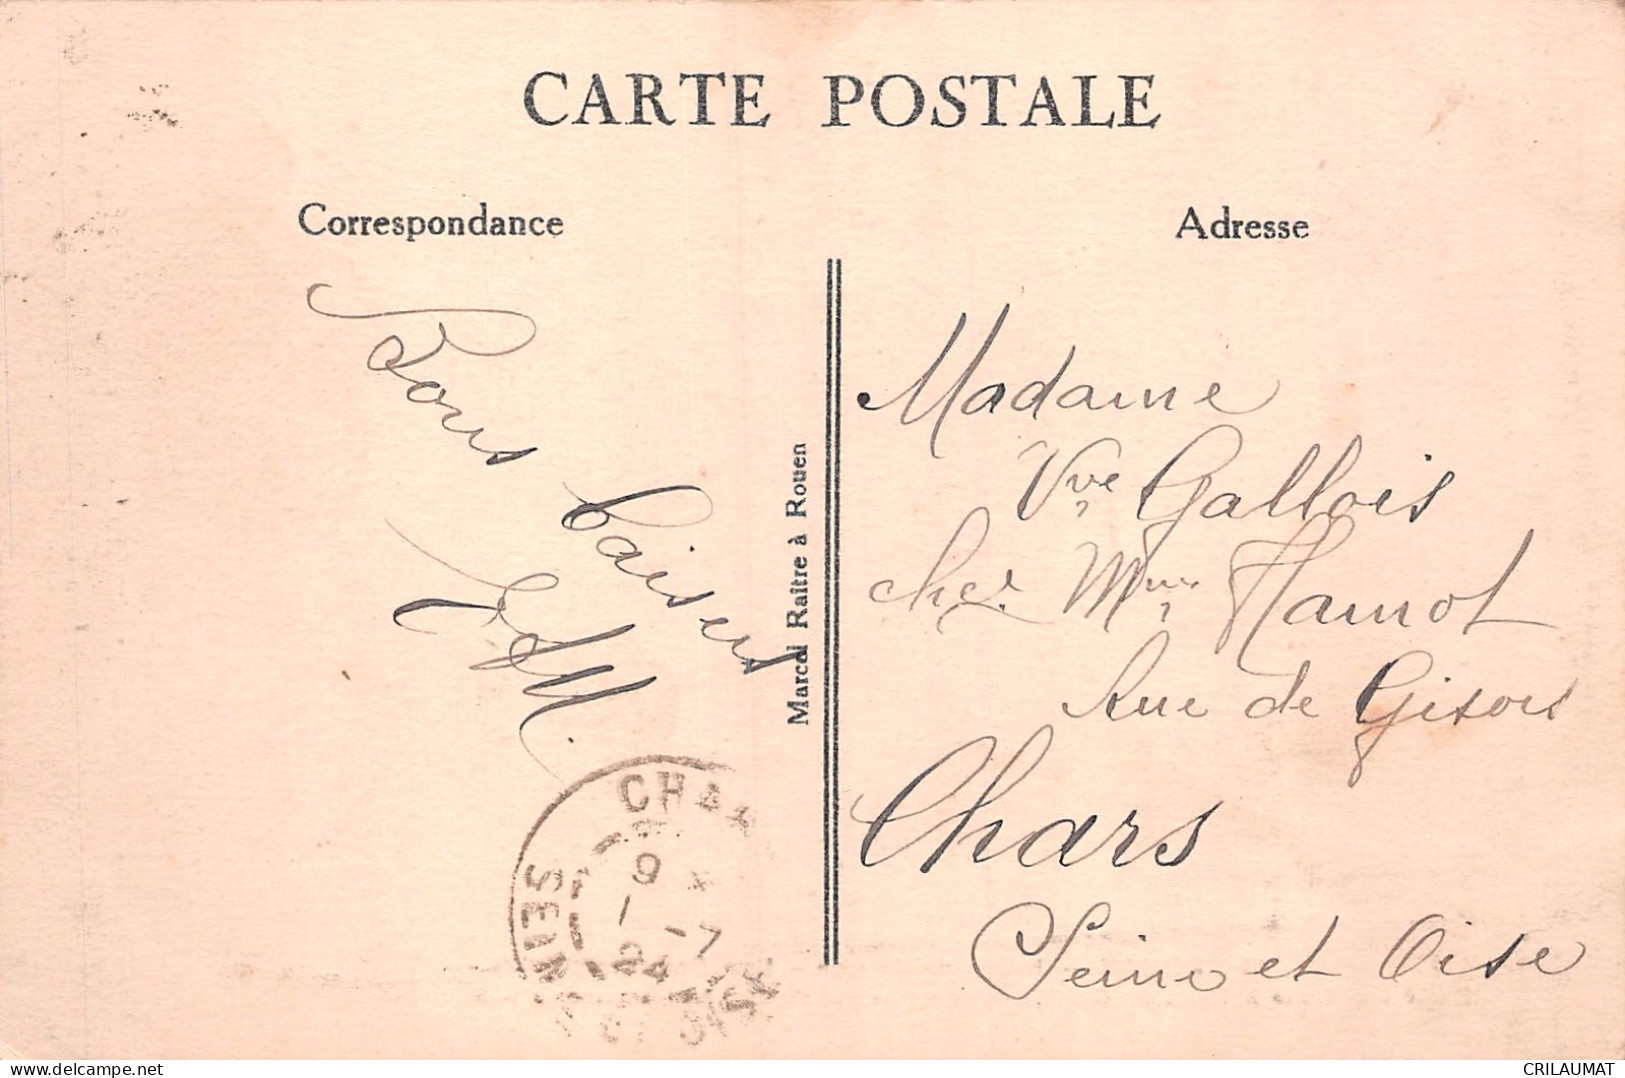 CARTE POSTALE
Correspondance
Adresse
Bons baisers
Marcel Raitre à Rouen
Madame
Vve Gallois
chez Mme Hamot
Rue de Gisors
Chars
Seine et Oise
CHARS
9 -7
24
SEINE ET OISE
delcampe.net
CRILAUMAT